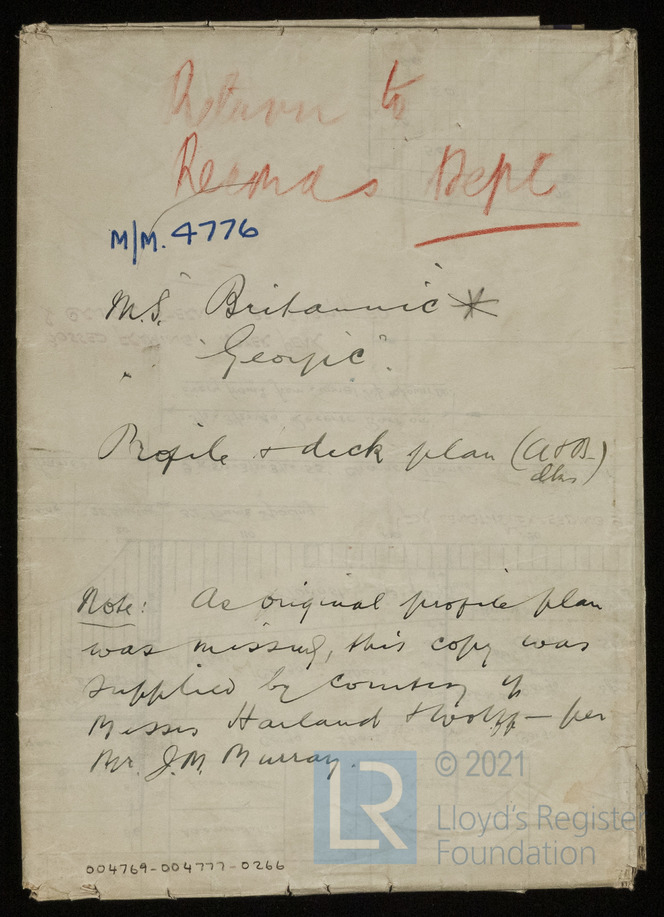 Return to
Records Dept
M/M. 4776
M.S. "Britannic" *
" "Georgic".
Profile & deck plan (A & B
dks)
Note: As original profile plan
was missing, this copy was
supplied by courtesy of
Messrs Harland & Wolff - per
Mr. J.M. Murray.
LR
© 2021
Lloyd's Register
Foundation
004769-004777-0266